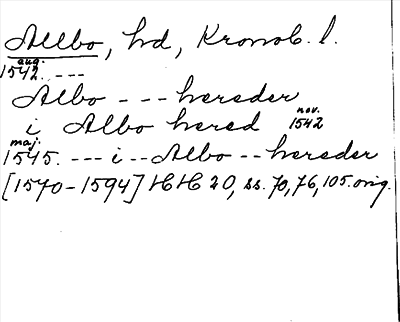 Allbo, hd, Kronob. l.
aug.
1542. ---
Albo --- hereder
i Albo hered nov. 1542
maj.
1545. --- i -- Albo -- hereder
[1570-1594] HH 20, ss. 70, 76, 105. orig.